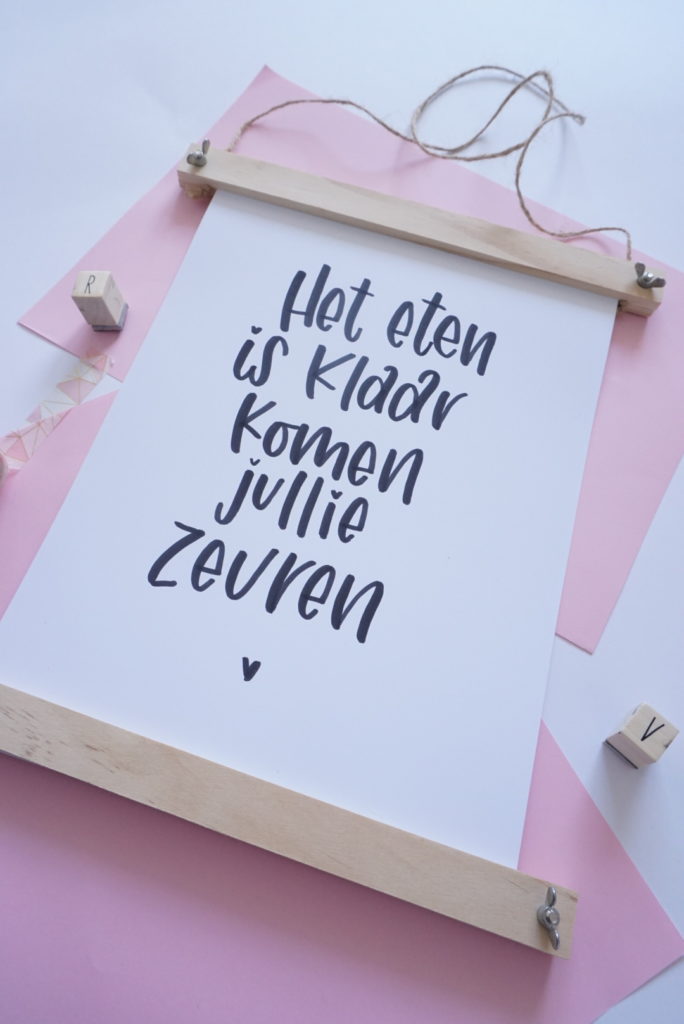 Het eten
is klaar
komen
jullie
zeuren
R
V